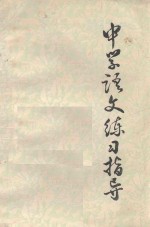 中学语文练习指导